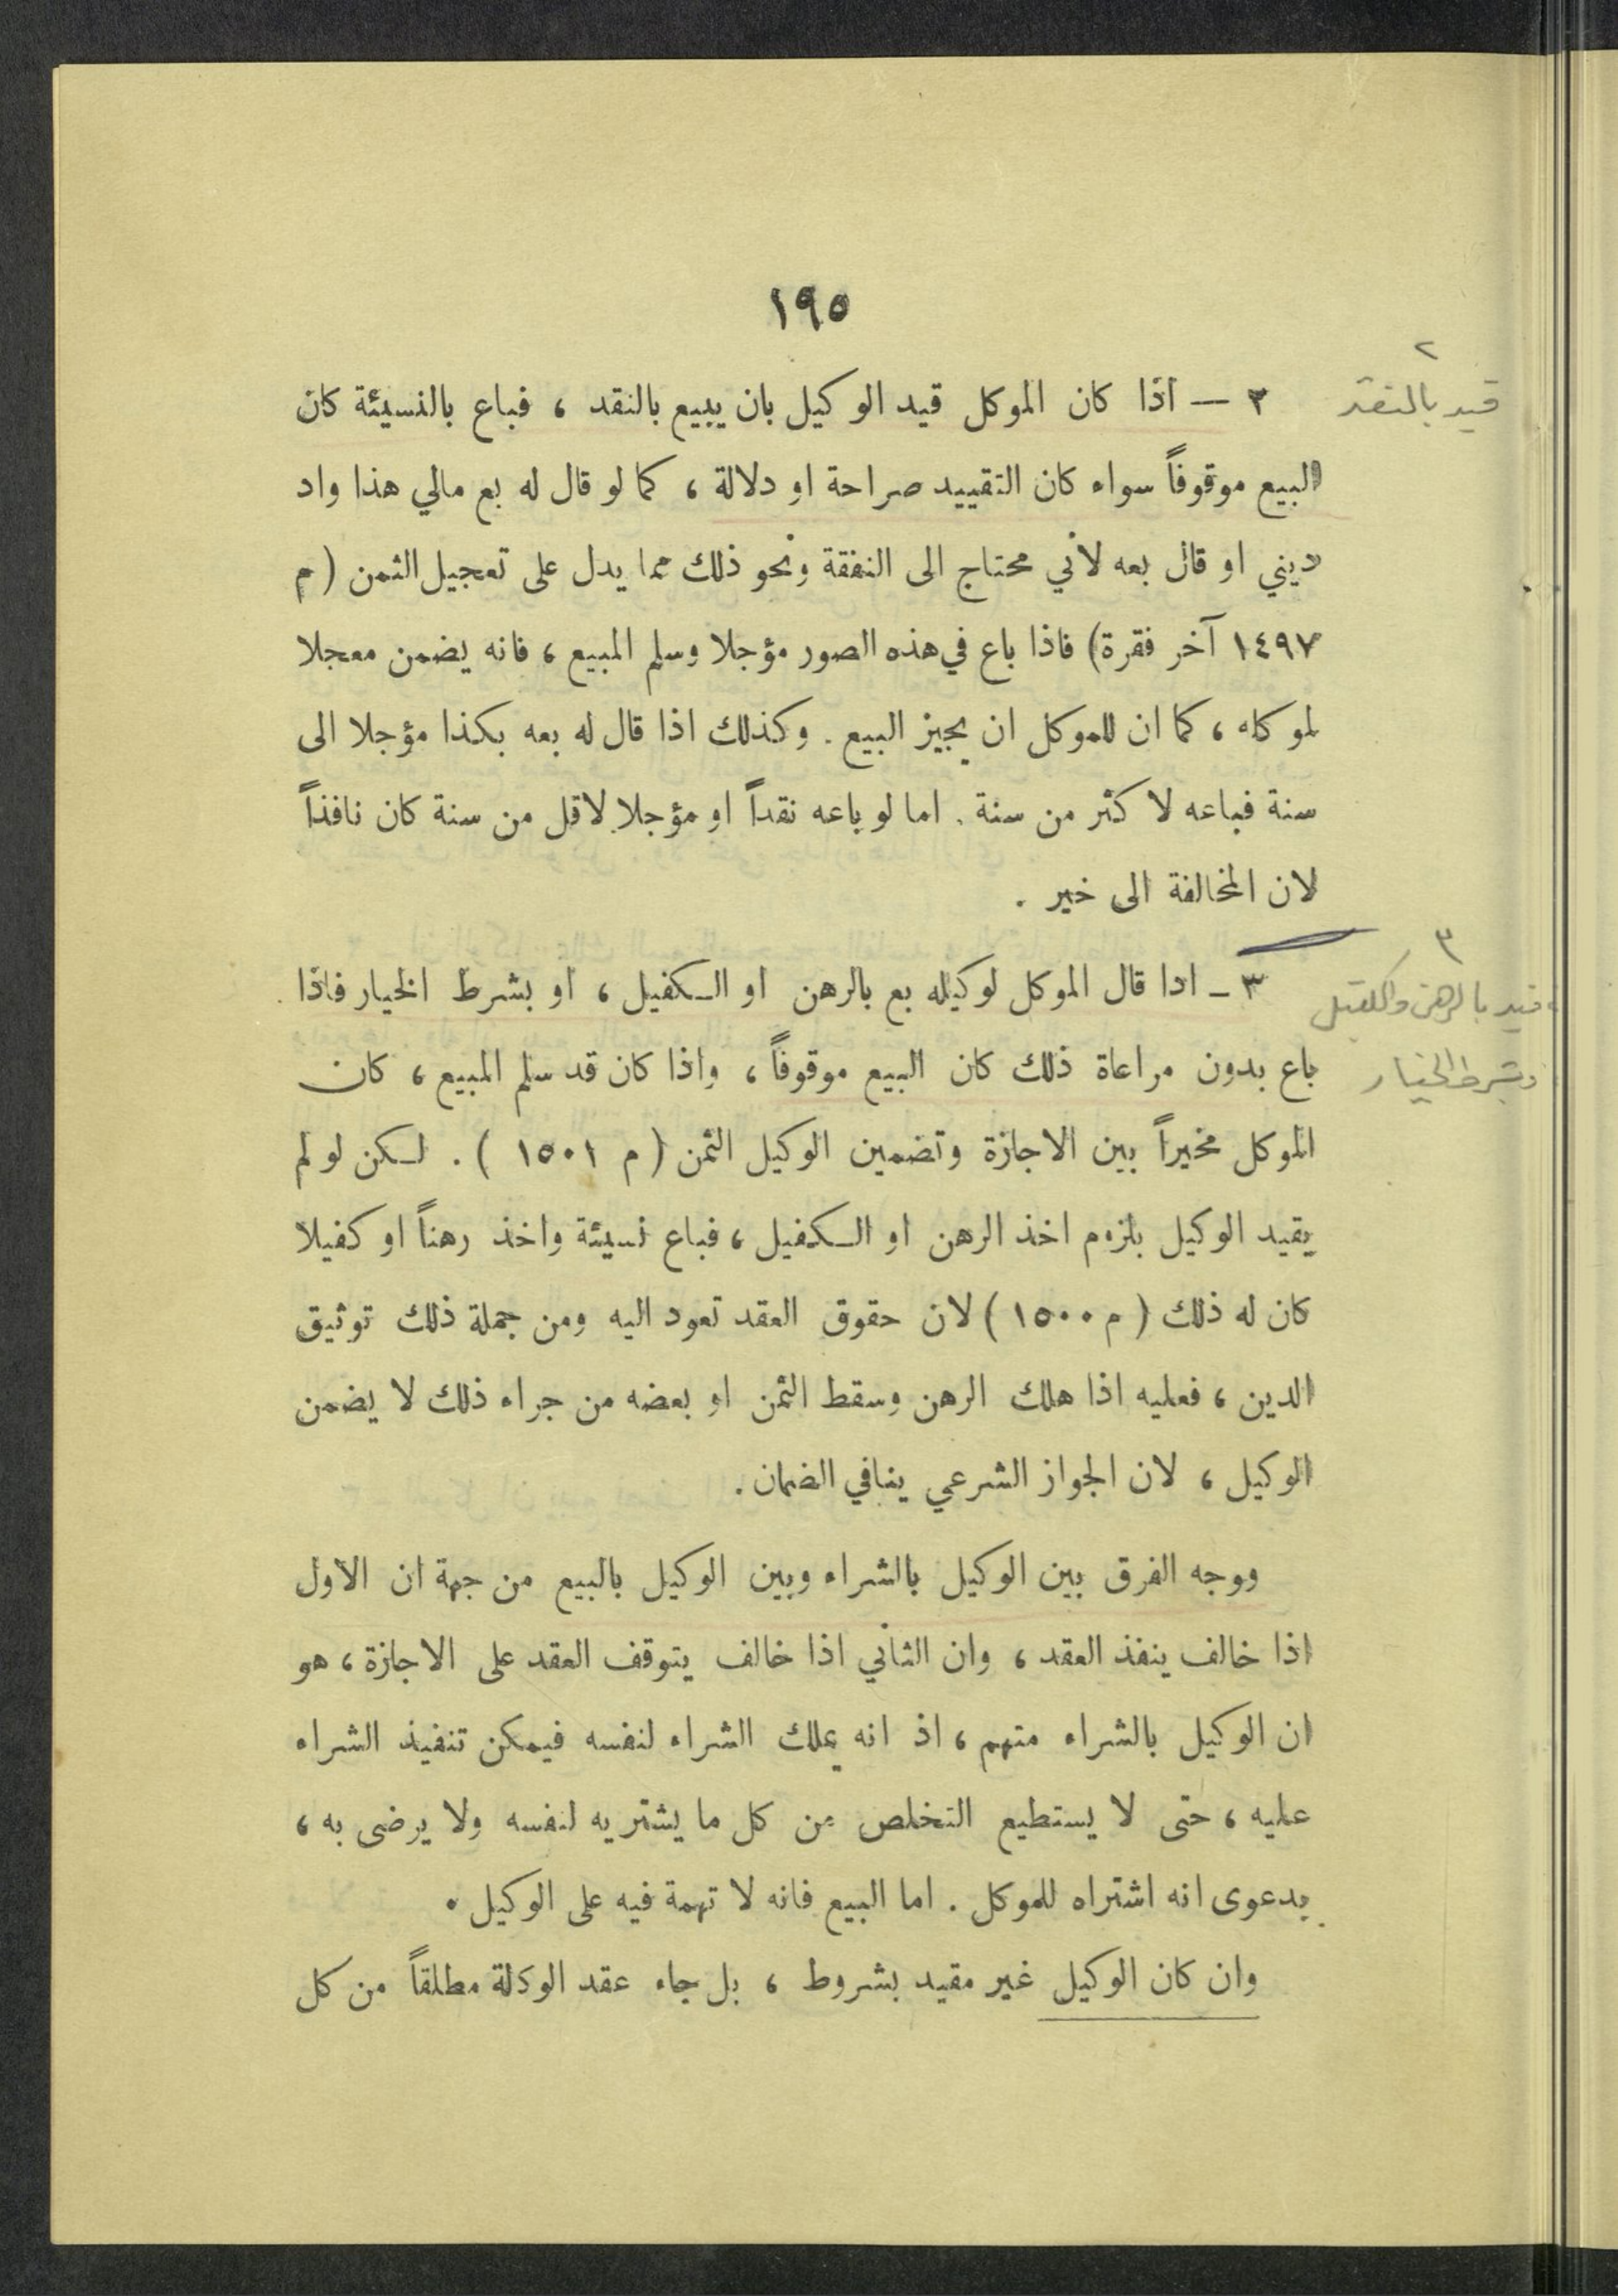 ١٩٥
٢
قيد بالنقد
٢ — اذا كان الموكل قيد الوكيل بان يبيع بالنقد ، فباع بالنسيئة كان
البيع موقوفاً سواء كان التقييد صراحة او دلالة ، كما لو قال له بع مالي هذا واد
ديني او قال بعه لأني محتاج الى النفقة ونحو ذلك مما يدل على تعجيل الثمن (م
١٤٩٧ آخر فقرة) فاذا باع في هذه الصور مؤجلا وسلم المبيع ، فانه يضمن معجلا
لموكله ، كما ان للموكل ان يجيز البيع . وكذلك اذا قال له بعه بكذا مؤجلا الى
سنة فباعه لا كثر من سنة . اما لو باعه نقداً او مؤجلا لاقل من سنة كان نافذاً
لان المخالفة الى خير .
٣
قيد بالرهن والكفيل
وبشرط الخيار
٣ – اذا قال الموكل لوكيله بع بالرهن او الكفيل ، او بشرط الخيار فاذا
باع بدون مراعاة ذلك كان البيع موقوفاً ، واذا كان قد سلم المبيع ، كان
الموكل مخيراً بين الاجازة وتضمين الوكيل الثمن ( م ١٥٠١ ) . لكن لو لم
يقيد الوكيل بلزوم اخذ الرهن او الكفيل ، فباع نسيئة واخذ رهناً او كفيلا
كان له ذلك ( م ١٥٠٠ ) لان حقوق العقد تعود اليه ومن جملة ذلك توثيق
الدين ، فعليه اذا هلك الرهن وسقط الثمن او بعضه من جراء ذلك لا يضمن
الوكيل ، لان الجواز الشرعي ينافي الضمان .
ووجه الفرق بين الوكيل بالشراء وبين الوكيل بالبيع من جهة ان الاول
اذا خالف ينفذ العقد ، وان الثاني اذا خالف يتوقف العقد على الاجازة ، هو
ان الوكيل بالشراء متهم ، اذ انه يملك الشراء لنفسه فيمكن تنفيذ الشراء
عليه ، حتى لا يستطيع التخلص من كل ما يشتريه لنفسه ولا يرضى به ،
بدعوى انه اشتراه للموكل . اما البيع فانه لا تهمة فيه على الوكيل .
وان كان الوكيل غير مقيد بشروط ، بل جاء عقد الوكالة مطلقاً من كل